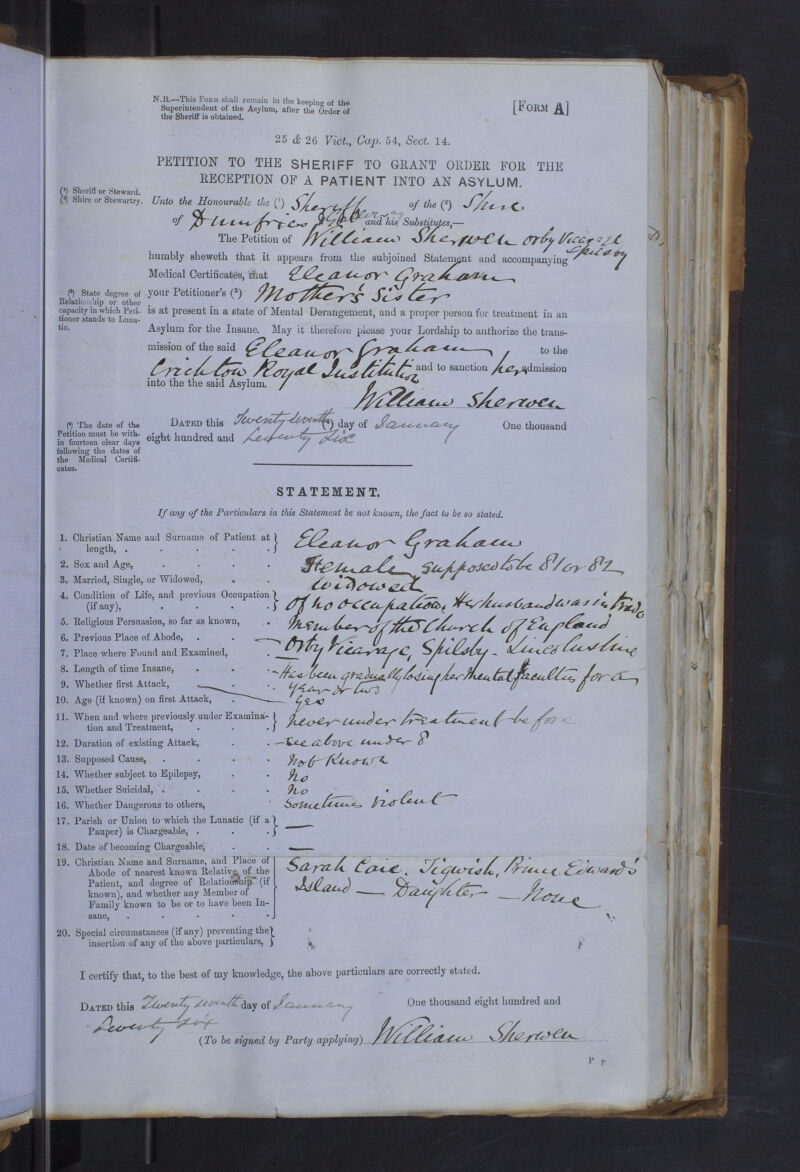 N.B.—This FORM shall remain in the keeping of the
Superintendent of the Asylum, after the Order of
the Sheriff is obtained.
[FORM A]
25 & 26 Vict., Cap. 54, Sect. 14.
PETITION TO THE SHERIFF TO GRANT ORDER FOR THE
RECEPTION OF A PATIENT INTO AN ASYLUM.
(¹) Sheriff or Steward.
(²) Shire or Stewartry.
Unto the Honourable the (¹) Sheriff of the (²) Shire
of Dumfries and his Substitutes,—
The Petition of William Sherwen Orby Vicarage
Spilsby
humbly sheweth that it appears from the subjoined Statement and accompanying
Medical Certificates, that Eleanor Graham
(³) State degree of
Relationship or other
capacity in which Peti-
tioner stands to Luna-
tic.
your Petitioner's (³) Mother's Sister
is at present in a state of Mental Derangement, and a proper person for treatment in an
Asylum for the Insane. May it therefore please your Lordship to authorize the trans-
mission of the said Eleanor Graham to the
Crichton Royal Institution and to sanction her admission
into the the said Asylum.
William Sherwen
(⁴) The date of the
Petition must be with-
in fourteen clear days
following the dates of
the Medical Certifi-
cates.
DATED this Twenty seventh (⁴) day of January One thousand
eight hundred and Seventy Six
STATEMENT.
If any of the Particulars in this Statement be not known, the fact to be so stated.
1. Christian Name and Surname of Patient at
length, . . . . . } Eleanor Graham
2. Sex and Age, . . . . Female supposed to be 81 or 82
3. Married, Single, or Widowed, . . Widowed
4. Condition of Life, and previous Occupation
(if any), . . . . } Of no occupation. Her husband was in trade
5. Religious Persuasion, so far as known, . Member of the Church of England
6. Previous Place of Abode, . . — Orby Vicarage, Spilsby - Lincolnshire
7. Place where Found and Examined, .
8. Length of time Insane, . . . - Has been gradually losing her mental faculties for a
year or two
9. Whether first Attack, . . Yes
10. Age (if known) on first Attack, .
11. When and where previously under Examina-
tion and Treatment, . . . } Never under treatment before
12. Duration of existing Attack, . . — See above under 8
13. Supposed Cause, . . . . Not Known
14. Whether subject to Epilepsy, . . No
15. Whether Suicidal, . . . . No
16. Whether Dangerous to others, . Sometimes violent
17. Parish or Union to which the Lunatic (if a
Pauper) is Chargeable, . . . } —
18. Date of becoming Chargeable, . . —
19. Christian Name and Surname, and Place of
Abode of nearest known Relative of the
Patient, and degree of Relationship (if
known), and whether any Member of
Family known to be or to have been In-
sane, . . . . .
Sarah Tigwish, Prince Edward's
Island — Daughter — None
20. Special circumstances (if any) preventing the
insertion of any of the above particulars, }
I certify that, to the best of my knowledge, the above particulars are correctly stated.
DATED this Twenty seventh day of January One thousand eight hundred and
Seventy six
(To be signed by Party applying) William Sherwen
P p